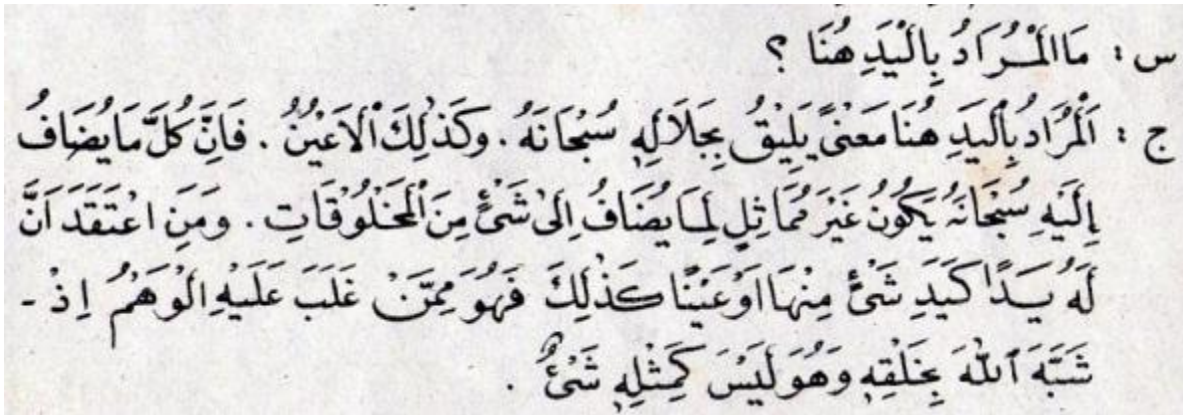 س : مَا الْمُرَادُ بِالْيَدِ هُنَا ؟
ج : اَلْمُرَادُ بِالْيَدِ هُنَا مَعْنًى يَلِيْقُ بِجَلَالِهِ سُبْحَانَهُ . وَكَذٰلِكَ الْاَعْيُنُ . فَاِنَّ كُلَّ مَا يُضَافُ
اِلَيْهِ سُبْحَانَهُ يَكُوْنُ غَيْرَ مُمَاثِلٍ لِمَا يُضَافُ اِلٰى شَيْءٍ مِنَ الْمَخْلُوْقَاتِ . وَمَنِ اعْتَقَدَ اَنَّ
لَهُ يَدًا كَيَدِ شَيْءٍ مِنْهَا اَوْ عَيْنًا كَذٰلِكَ فَهُوَ مِمَّنْ غَلَبَ عَلَيْهِ الْوَهْمُ اِذْ -
شَبَّهَ اللّٰهَ بِخَلْقِهِ وَهُوَ لَيْسَ كَمِثْلِهِ شَيْءٌ .